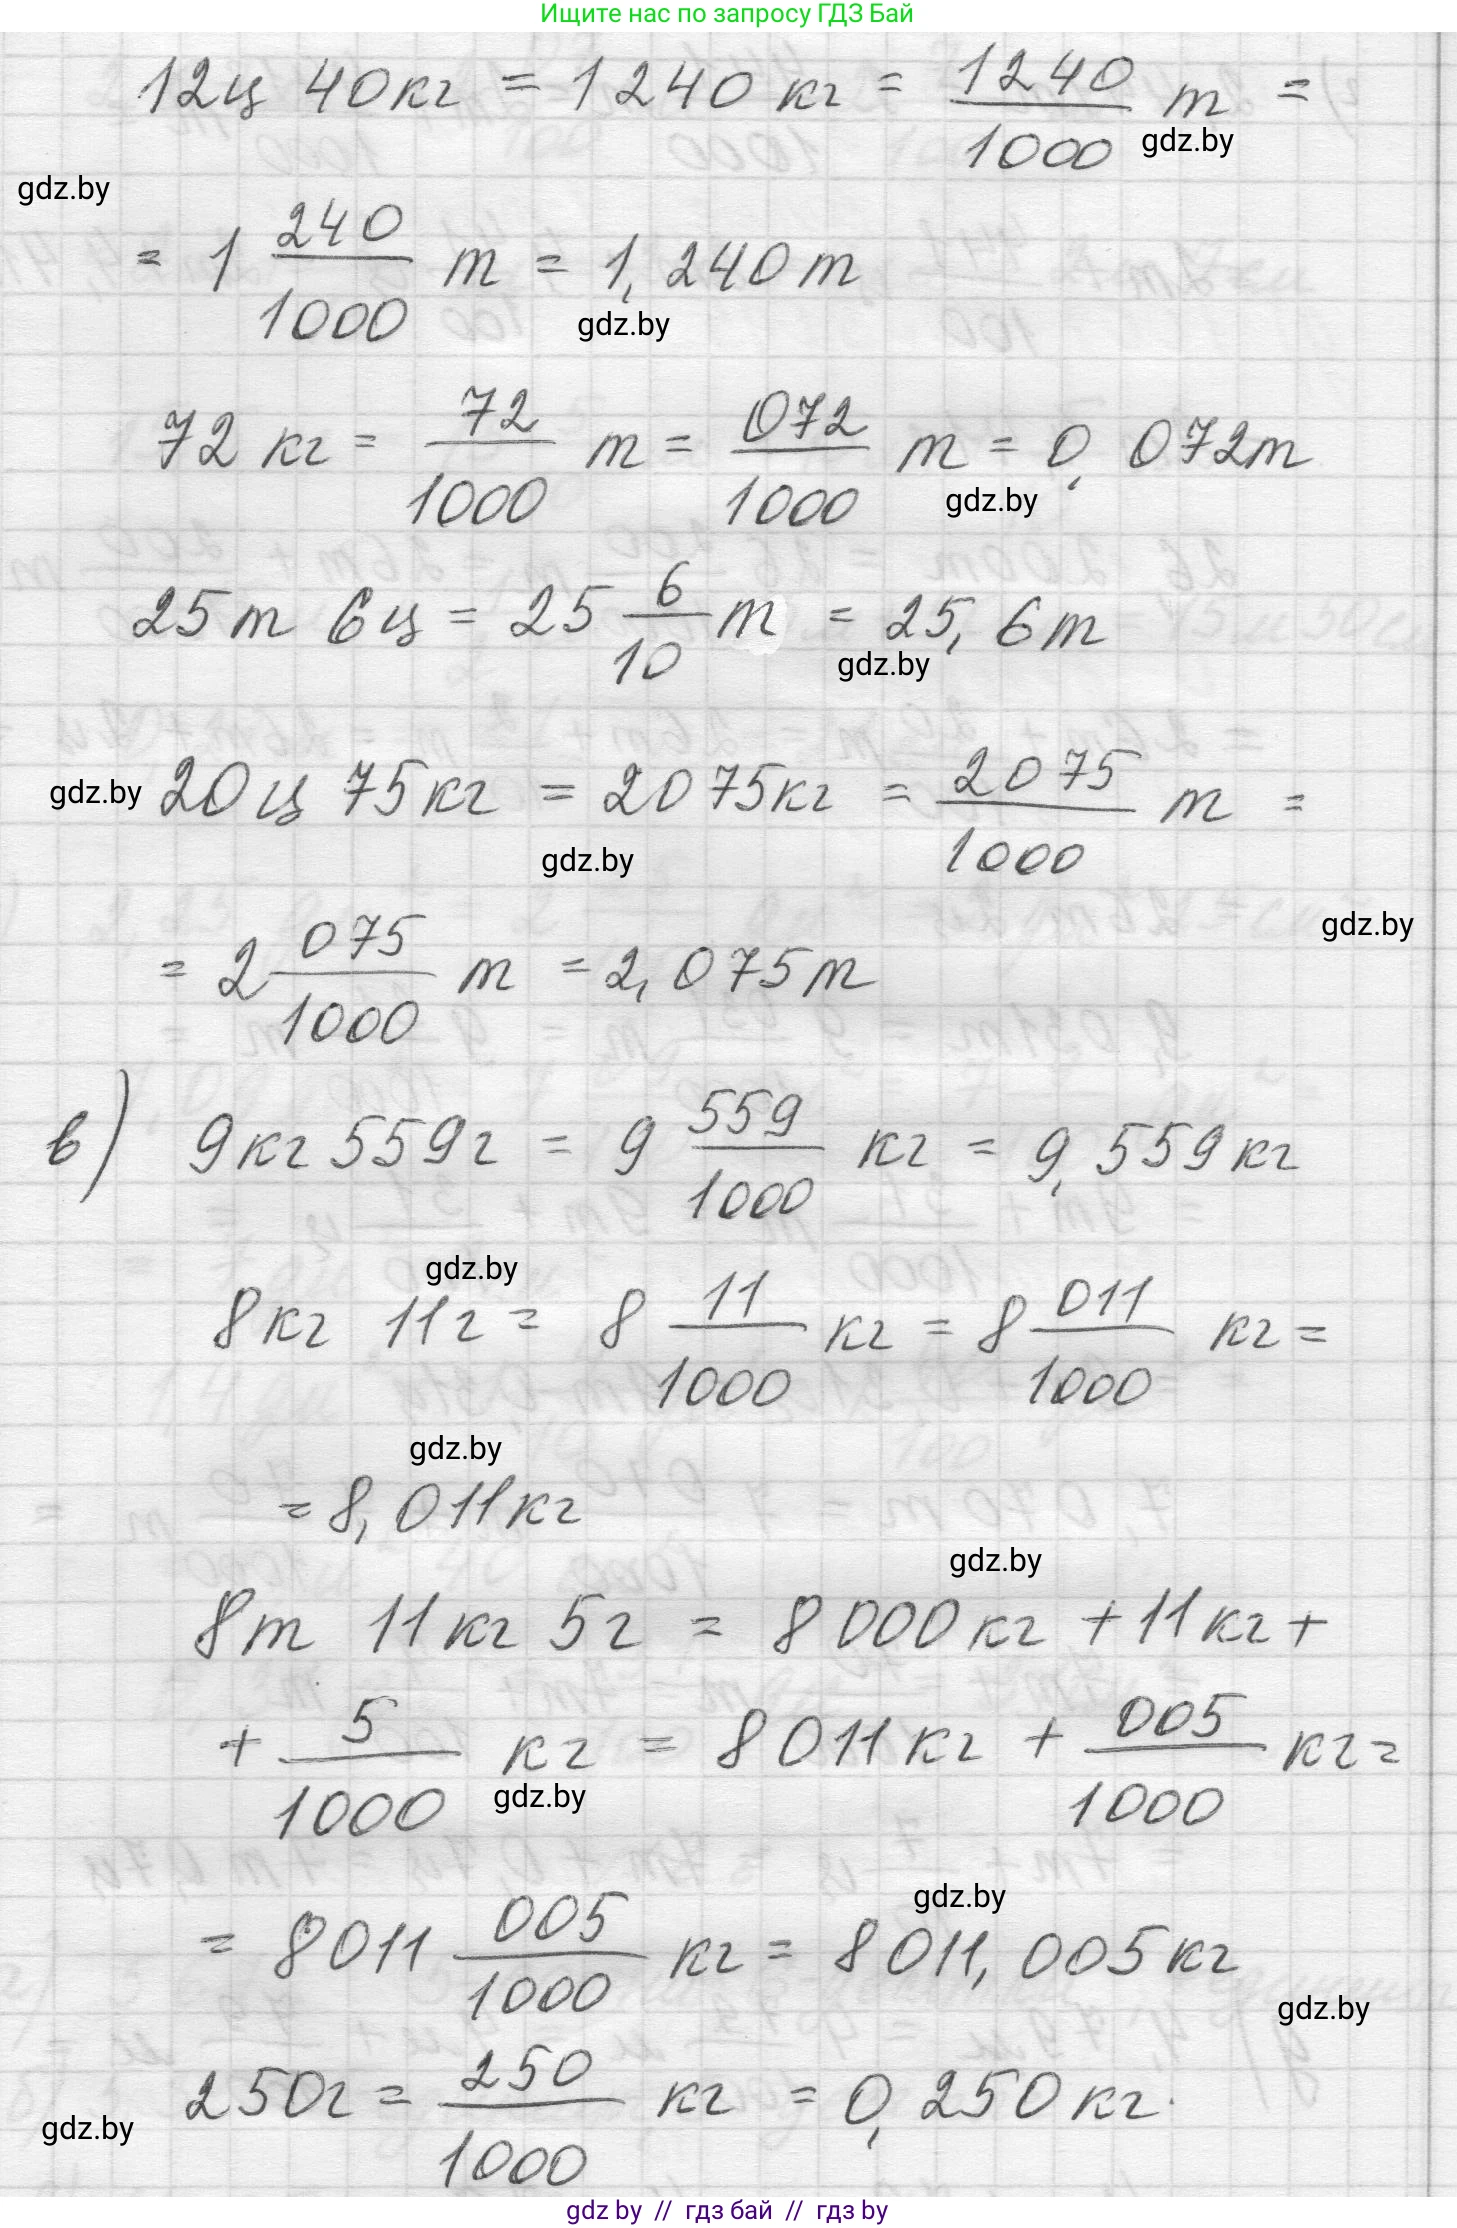 Ищите нас по запросу ГДЗ Бай
12ц 40кг = 1240 кг = 1240/1000 т =
gdz.by
gdz.by
= 1 240/1000 т = 1,240 т
gdz.by
72 кг = 72/1000 т = 072/1000 т = 0,072т
gdz.by
25т 6ц = 25 6/10 т = 25,6т
gdz.by
20ц 75кг = 2075кг = 2075/1000 т =
gdz.by
gdz.by
gdz.by
= 2 075/1000 т = 2,075т
в) 9кг 559г = 9 559/1000 кг = 9,559кг
gdz.by
8кг 11г = 8 11/1000 кг = 8 011/1000 кг =
gdz.by
= 8,011кг
gdz.by
8т 11кг 5г = 8000кг + 11кг +
+ 5/1000 кг = 8011кг + 005/1000 кг =
gdz.by
gdz.by
= 8011 005/1000 кг = 8011,005кг
gdz.by
250г = 250/1000 кг = 0,250кг.
gdz.by
gdz by // гдз бай // гдз by